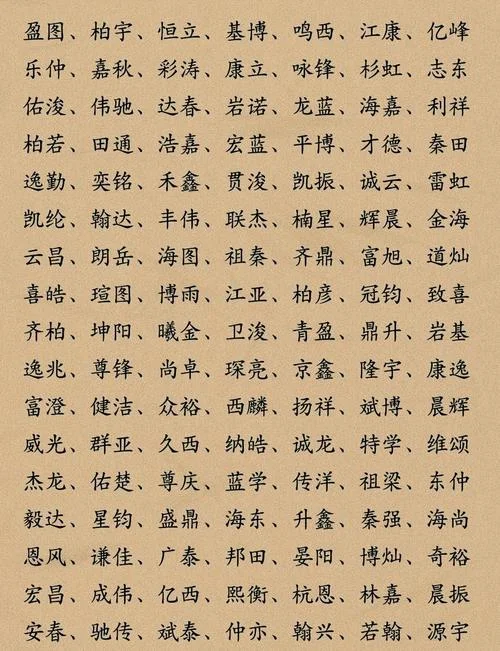 盈图、柏宇、恒立、基博、鸣西、江康、亿峰
乐仲、嘉秋、彩涛、康立、咏锋、杉虹、志东
佑浚、伟驰、达春、岩诺、龙蓝、海嘉、利祥
柏若、田通、浩嘉、宏蓝、平博、才德、秦田
逸勤、奕铭、禾鑫、贯浚、凯振、诚云、雷虹
凯纶、翰达、丰伟、联杰、楠星、辉晨、金海
云昌、朗岳、海图、祖秦、齐鼎、富旭、道灿
喜皓、瑄图、博雨、江亚、柏彦、冠钧、致喜
齐柏、坤阳、曦金、卫浚、青盈、鼎升、岩基
逸兆、尊锋、尚卓、琛亮、京鑫、隆宇、康逸
富澄、健洁、众裕、西麟、扬祥、斌博、晨辉
威光、群亚、久西、纳皓、诚龙、特学、维颂
杰龙、佑楚、尊庆、蓝学、传洋、祖梁、东仲
毅达、星钧、盛鼎、海东、升鑫、秦强、海尚
恩风、谦佳、广泰、邦田、晏阳、博灿、奇裕
宏昌、成伟、亿西、熙衡、杭恩、林嘉、晨振
安春、驰传、斌泰、仲亦、翰兴、若翰、源宇